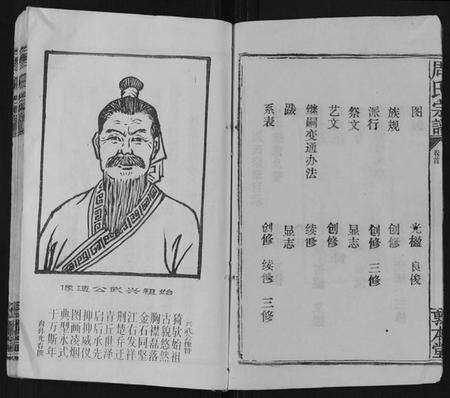 周氏宗譜
卷首
图 光楹 良俊
族规 创修
派行 创修 三修
祭文 显志
艺文 创修
继嗣变通办法 续修
跋 显志
系表 创修 续修 三修
始祖兴武公遗像
猗欤始祖
古貌悠然
胸襟磊落
金石同坚
江右发祥
荆楚乔迁
青丘世泽
启后承先
抑抑威仪
图画凌烟
典型永式
于万斯年